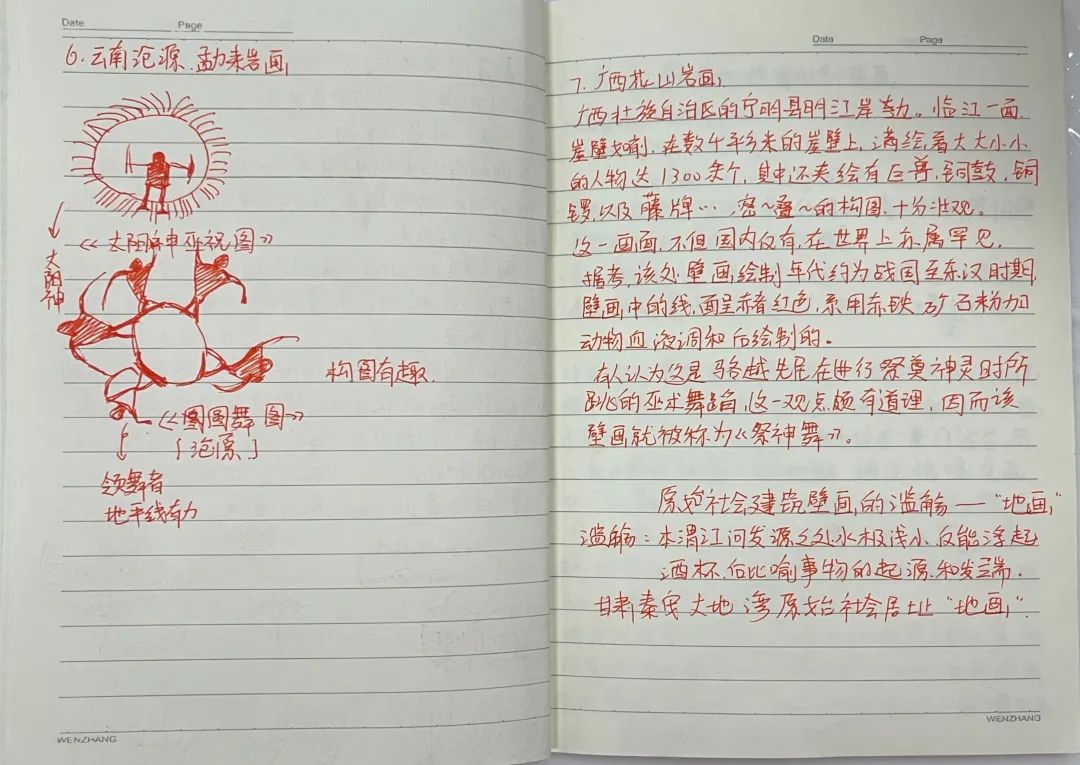 Date Page
6. 云南沧源.勐来岩画
《太阳神巫祝图》
太阳神
构图有趣.
《圕圆舞图》
[沧源]
领舞者
地平线有力
WENZHANG
Date Page
7. 广西花山岩画
广西壮族自治区的宁明县明江岸有。临江一面
崖壁如削,在数千平方米的崖壁上,满绘着大大小小
的人物达1300余个,其中还夹绘有巨兽,铜鼓,铜
锣,以及藤牌…,密~叠~的构图,十分壮观。
这一画面,不但国内仅有,在世界上亦属罕见.
据考,该处壁画绘制年代约为战国至东汉时期,
壁画中的线,面呈赤者红色,系用赤铁矿石粉加
动物血液调和后绘制的。
有人认为这是骆越先民在进行祭奠神灵时所
跳的巫术舞蹈,这一观点颇有道理,因而该
壁画就被称为《祭神舞》。
原始社会建筑壁画的滥觞——"地画"
滥觞:本谓江河发源之处水极浅小,仅能浮起
酒杯,后比喻事物的起源和发端.
甘肃秦安大地湾原始社会居址"地画".
WENZHANG